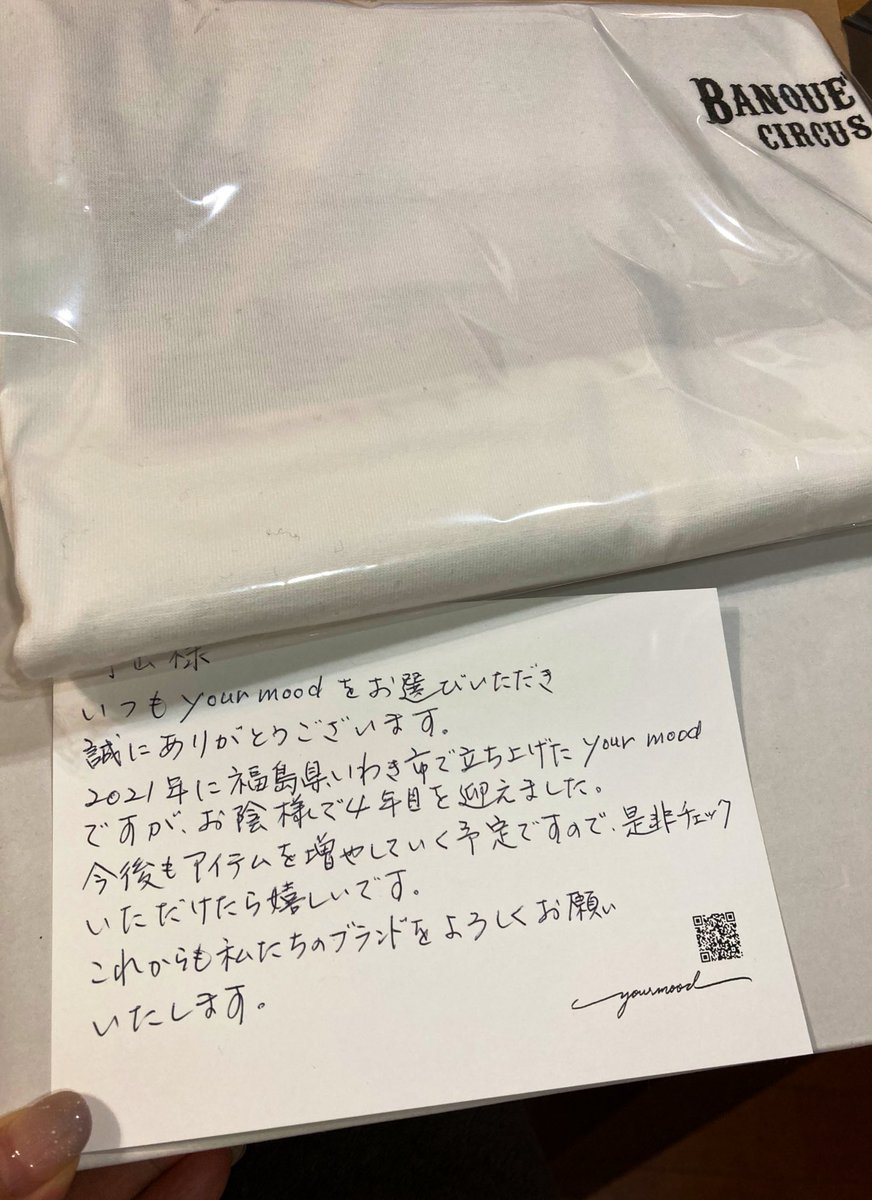 BANQUE
CIRCUS
様
いつも your mood をお選びいただき
誠にありがとうございます。
2021年に福島県いわき市で立ち上げた your mood
ですが、お陰様で4年目を迎えました。
今後もアイテムを増やしていく予定ですので、是非チェック
いただけたら嬉しいです。
これからも私たちのブランドをよろしくお願い
いたします。
yourmood